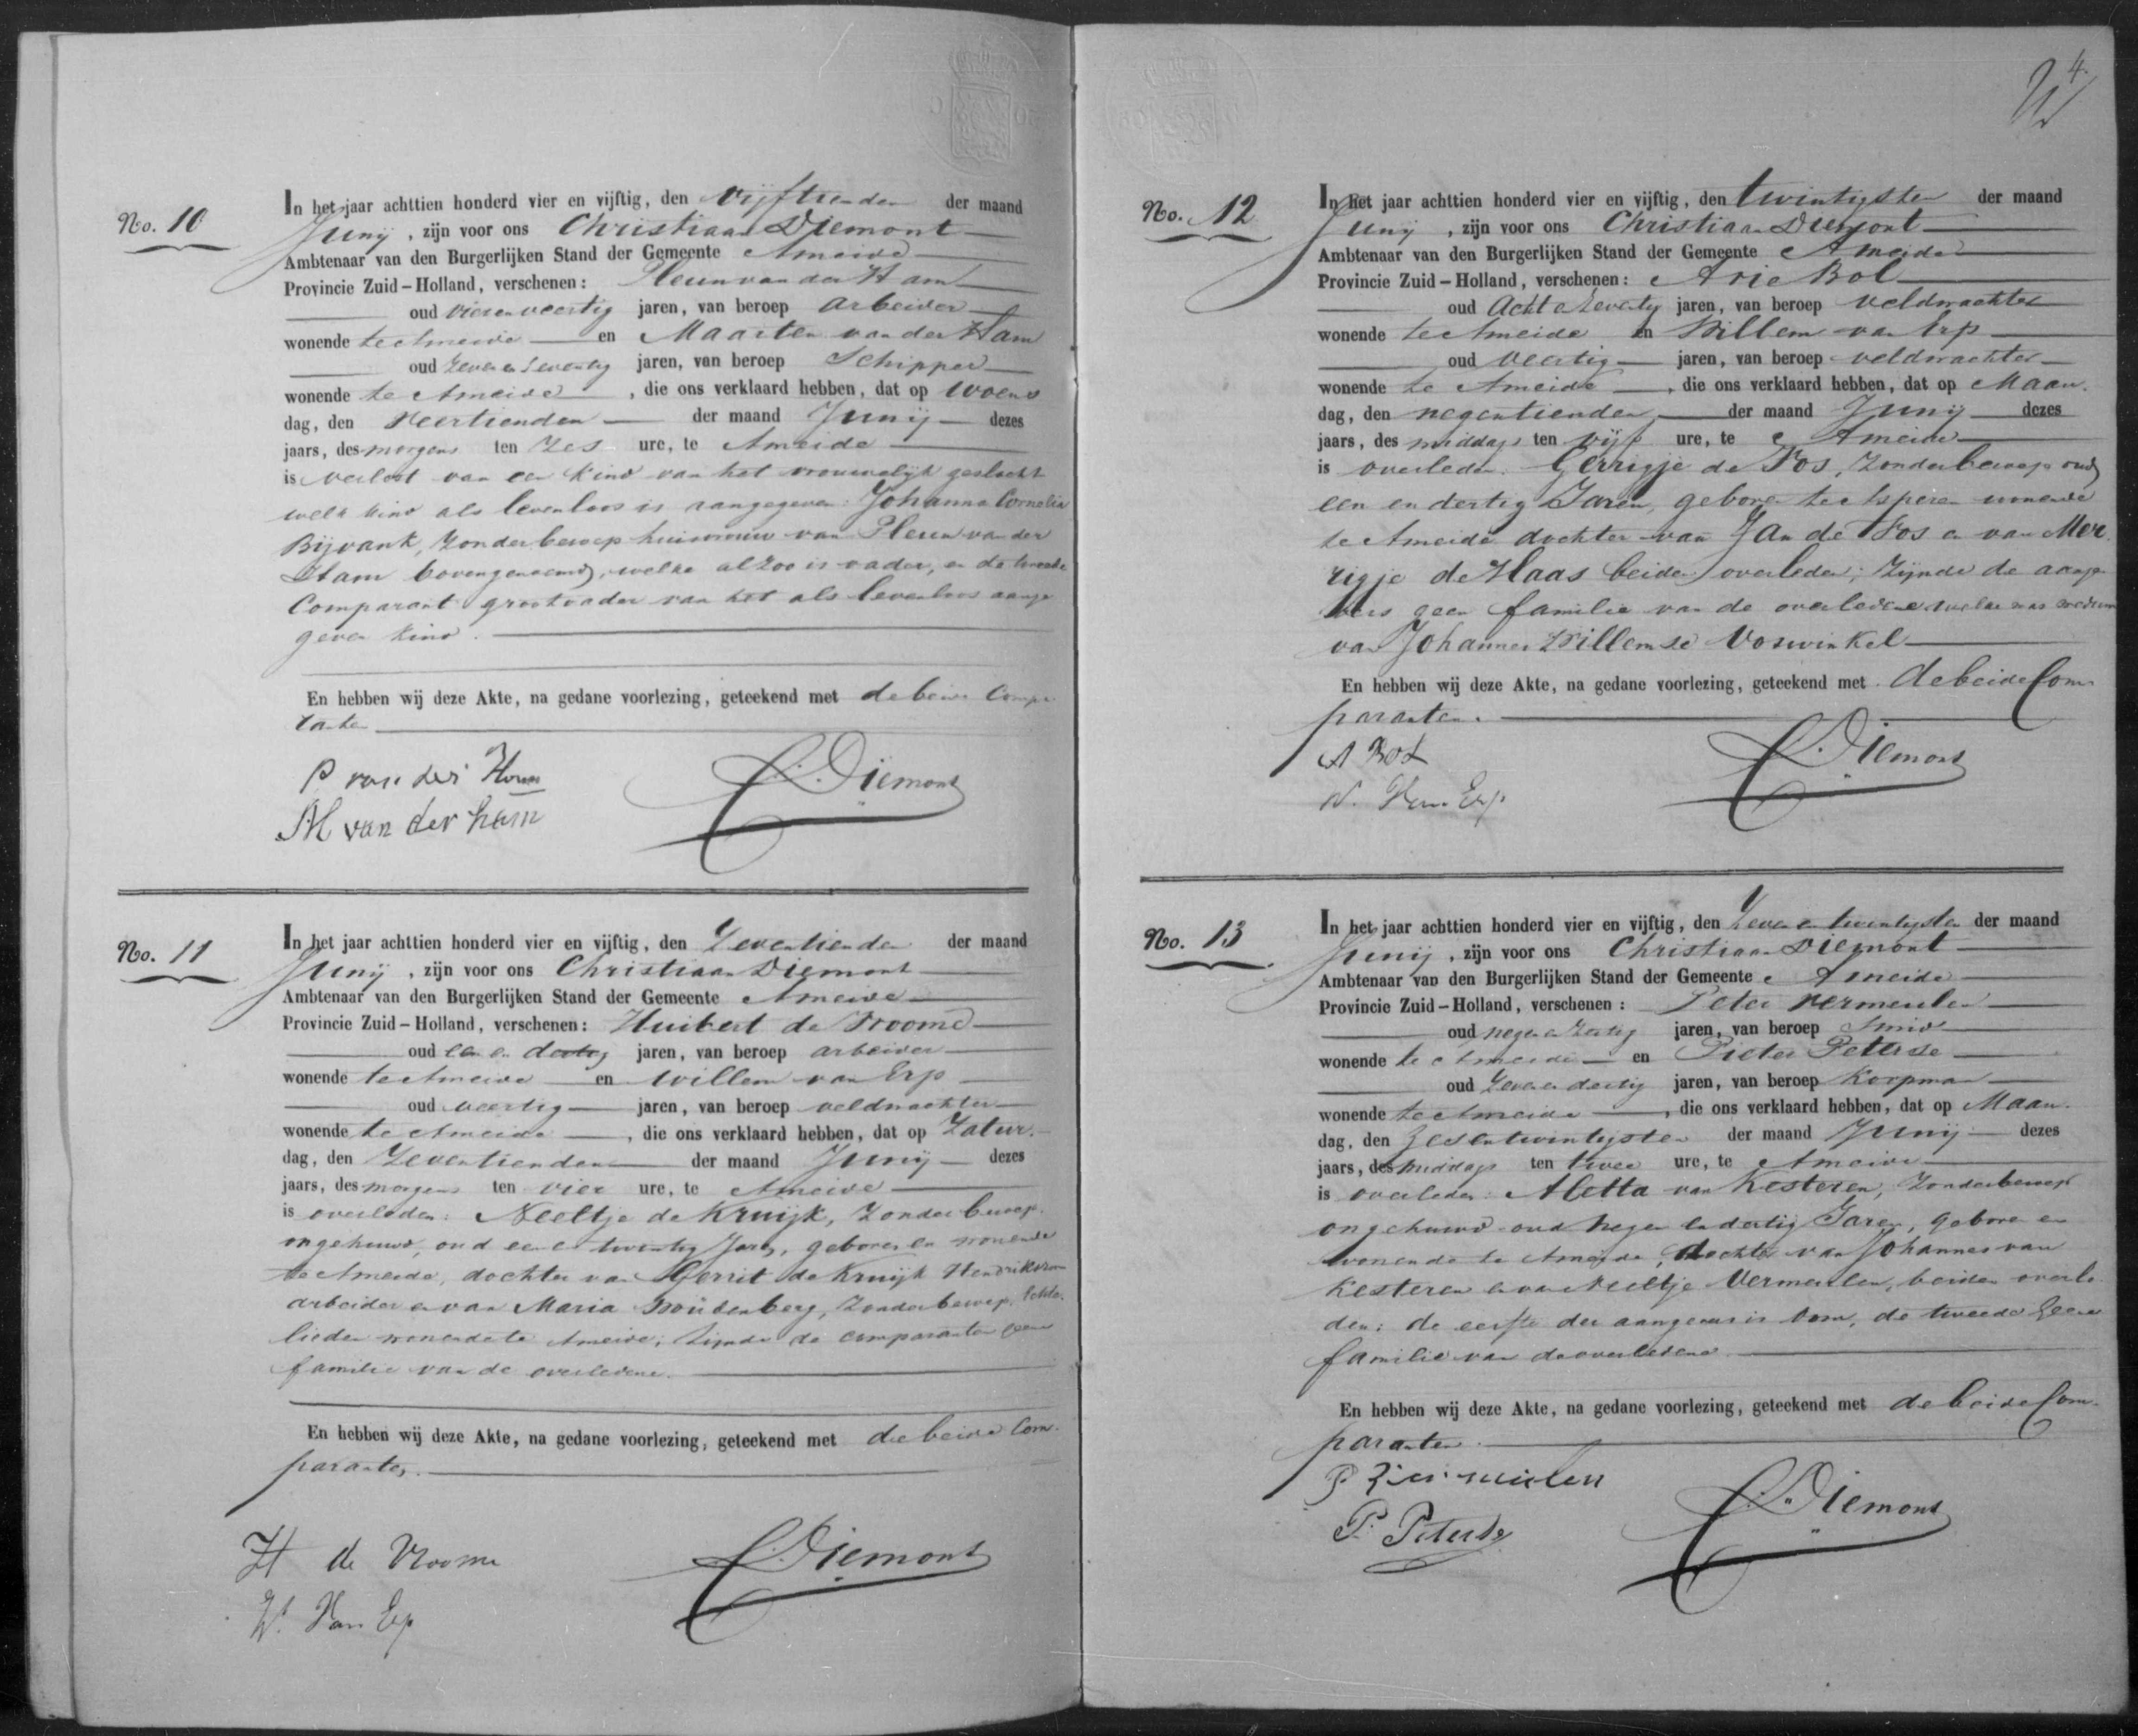 No. 10
In het jaar achttien honderd vier en vijftig, den vijftienden der maand
Junij, zijn voor ons Christiaan Diemont
Ambtenaar van den Burgerlijken Stand der Gemeente Ameide
Provincie Zuid-Holland, verschenen: Pleun van der Ham
oud vier en veertig jaren, van beroep arbeider
wonende te Ameide en Maarten van der Ham
oud zeven en seventig jaren, van beroep Schipper
wonende te Ameide, die ons verklaard hebben, dat op woens
dag, den veertienden der maand Junij dezes
jaars, des morgens ten zes ure, te Ameide
is verlost van een kind van het vrouwelijk geslacht
welk kind als levenloos is aangegeven: Johanna Cornelia
Bijvank, zonder beroep huisvrouw van Pleun van der
Ham bovengenoemd, welke alzoo is vader, en de tweede
Comparant grootvader van het als levenloos aange
geven kind.
En hebben wij deze Akte, na gedane voorlezing, geteekend met de beide Compa
ranten
P van der Ham
M van der ham
C. Diemont
No. 11
In het jaar achttien honderd vier en vijftig, den Zeventienden der maand
Junij, zijn voor ons Christiaan Diemont
Ambtenaar van den Burgerlijken Stand der Gemeente Ameide
Provincie Zuid-Holland, verschenen: Huibert de Vroome
oud een en dertig jaren, van beroep arbeider
wonende te Ameide en Willem van Erp
oud veertig jaren, van beroep veldwachter
wonende te Ameide, die ons verklaard hebben, dat op Zatur-
dag, den Zeventienden der maand Junij dezes
jaars, des morgens ten vier ure, te Ameide
is overleden: Neeltje de Kruijk, zonder beroep
ongehuwd, oud een en twintig Jaren, geboren en wonende
te Ameide, dochter van Gerrit de Kruijk
arbeider en van Maria zonder beroep, Echte-
lieden wonende te Ameide; zijnde de comparanten geen
familie van de overledene.
En hebben wij deze Akte, na gedane voorlezing, geteekend met de beide Com-
paranten.
H de Vroome
W. Van Erp
C. Diemont
4
No. 12
In het jaar achttien honderd vier en vijftig, den twintigsten der maand
Junij, zijn voor ons Christiaan Diemont
Ambtenaar van den Burgerlijken Stand der Gemeente Ameide
Provincie Zuid-Holland, verschenen: Arie Bol
oud Acht en seventig jaren, van beroep veldwachter
wonende te Ameide en Willem van Erp
oud veertig jaren, van beroep veldwachter
wonende te Ameide, die ons verklaard hebben, dat op Maan-
dag, den negentienden der maand Junij dezes
jaars, des middags ten vijf ure, te Ameide
is overleden: Gerrigje de Vos, zonder beroep oud
een en dertig Jaren, geboren te Asperen wonende
te Ameide dochter van Jan de Vos en van Mer
rigje de Haas beiden overleden; zijnde de aange
vers geen familie van de overledene welke was weduwe
van Johannes Willemse Voswinkel
En hebben wij deze Akte, na gedane voorlezing, geteekend met de beide Com-
paranten.
A Bol
W. Van Erp
C. Diemont
No. 13
In het jaar achttien honderd vier en vijftig, den Zeven en twintigsten der maand
Junij, zijn voor ons Christiaan Diemont
Ambtenaar van den Burgerlijken Stand der Gemeente Ameide
Provincie Zuid-Holland, verschenen: Peter Vermeulen
oud negen en jaren, van beroep Smid
wonende te Ameide en Pieter Peterse
oud zeven en dertig jaren, van beroep Koopman
wonende te Ameide, die ons verklaard hebben, dat op Maan-
dag, den Zesentwintigsten der maand Junij dezes
jaars, des middags ten twee ure, te Ameide
is overleden: Aletta van Kesteren, zonder beroep
ongehuwd oud negen en dertig Jaren, geboren en
wonende te Ameide, dochter van Johannes van
Kesteren en van Neeltje Vermeulen, beiden overle
den; de eerste der aangevers is oom, de tweede geene
familie van de overledene
En hebben wij deze Akte, na gedane voorlezing, geteekend met de beide Com-
paranten.
P. Vermeulen
P. Peterse
C. Diemont